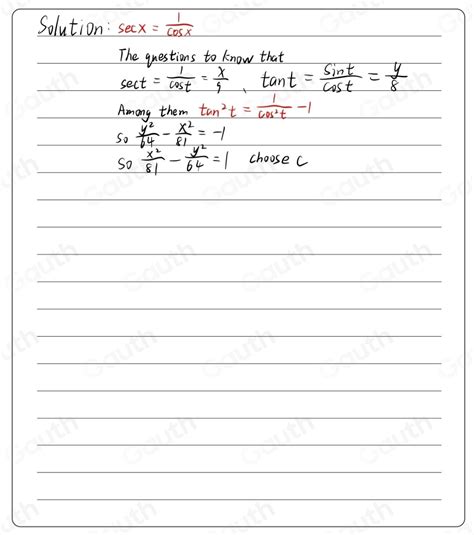 Solution: sec x = 1/cosx
The questions to know that
sect = 1/cost = x/9 、 tant = Sint/cost = y/8
Among them tan²t = 1/cos²t - 1
So y²/64 - x²/81 = -1
So x²/81 - y²/64 = 1 choose C
Gauth